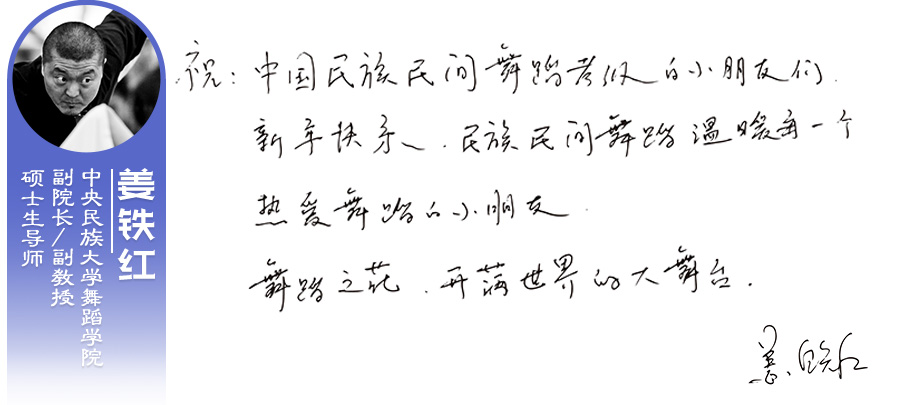 姜铁红
中央民族大学舞蹈学院
副院长/副教授
硕士生导师
祝:中国民族民间舞蹈考级的小朋友们.
新年快乐、民族民间舞蹈温暖每一个
热爱舞蹈的小朋友.
舞蹈之花、开满世界的大舞台.
姜铁红